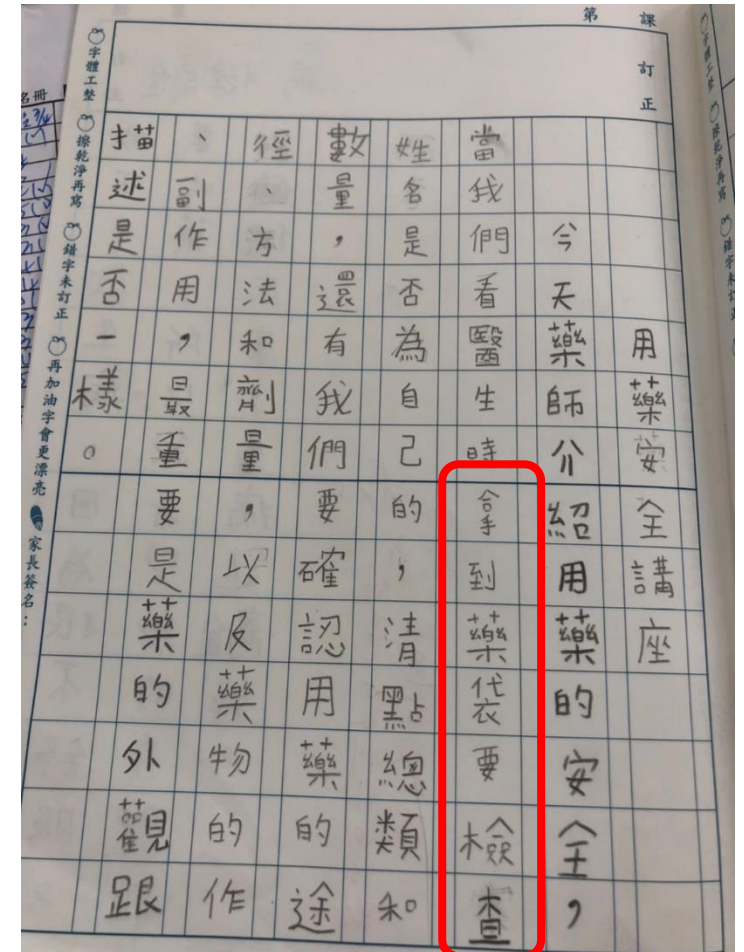 第 課
訂正
用藥安全講座
今天藥師介紹用藥的安全，
當我們看醫生時拿到藥袋要檢查
姓名是否為自己的，清點總類和
數量，還有我們要確認用藥的途
徑、方法和劑量，以及藥物的作
、副作用，最重要是藥的外觀跟
描述是否一樣。
字體工整 擦乾淨再寫 錯字未訂正 再加油字會更漂亮 家長簽名：
名冊